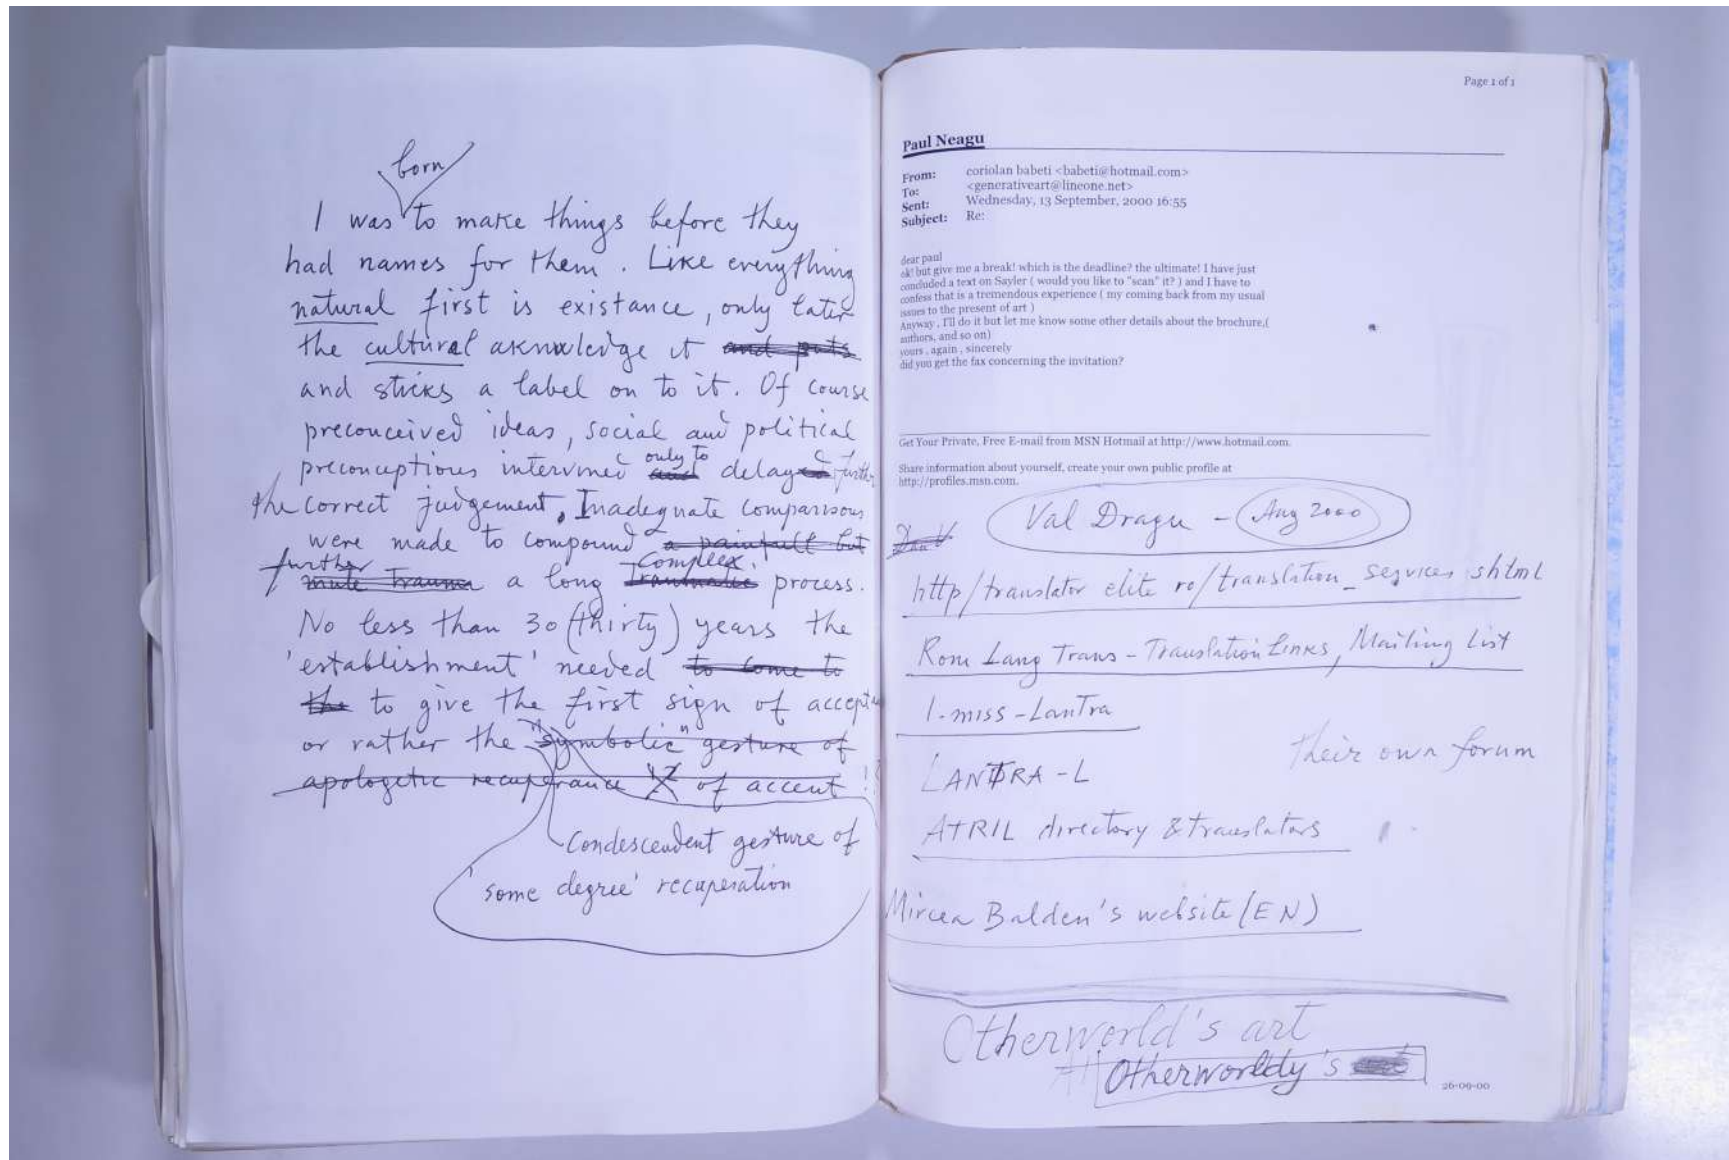 born
I was to make things before they
had names for them. Like everything
natural first is existance, only later
the cultural aknowledge it and puts
and sticks a label on to it. Of course
preconceived ideas, social and political
preconceptions intervined and only to delayed further
the correct judgement. Inadequate comparisons
were made to compound a painfull but
further mute trauma a long traumatic complex process.
No less than 30 (thirty) years the
'establishment' needed to come to
the to give the first sign of
or rather the "symbolic" gesture of
apologetic recuperance of accent
Condescendent gesture of
'some degree' recuperation
Page 1 of 1
Paul Neagu
From: coriolan babeti <babeti@hotmail.com>
To: <generativeart@lineone.net>
Sent: Wednesday, 13 September, 2000 16:55
Subject: Re:
dear paul
ok! but give me a break! which is the deadline? the ultimate! I have just
concluded a text on Sayler ( would you like to "scan" it? ) and I have to
confess that is a tremendous experience ( my coming back from my usual
issues to the present of art )
Anyway , I'll do it but let me know some other details about the brochure,(
authors, and so on)
yours , again , sincerely
did you get the fax concerning the invitation?
Get Your Private, Free E-mail from MSN Hotmail at http://www.hotmail.com.
Share information about yourself, create your own public profile at
http://profiles.msn.com.
Val Dragu - Aug 2000
Dan V
http/translator elite ro/translation_services shtml
Rom Lang Trans - Translation Links, Mailing List
1-miss-LanTra
LANTRA-L
their own forum
ATRIL directory & translators
Mircea Balden's website (EN)
Otherworld's art
Otherworldy's
26-09-00